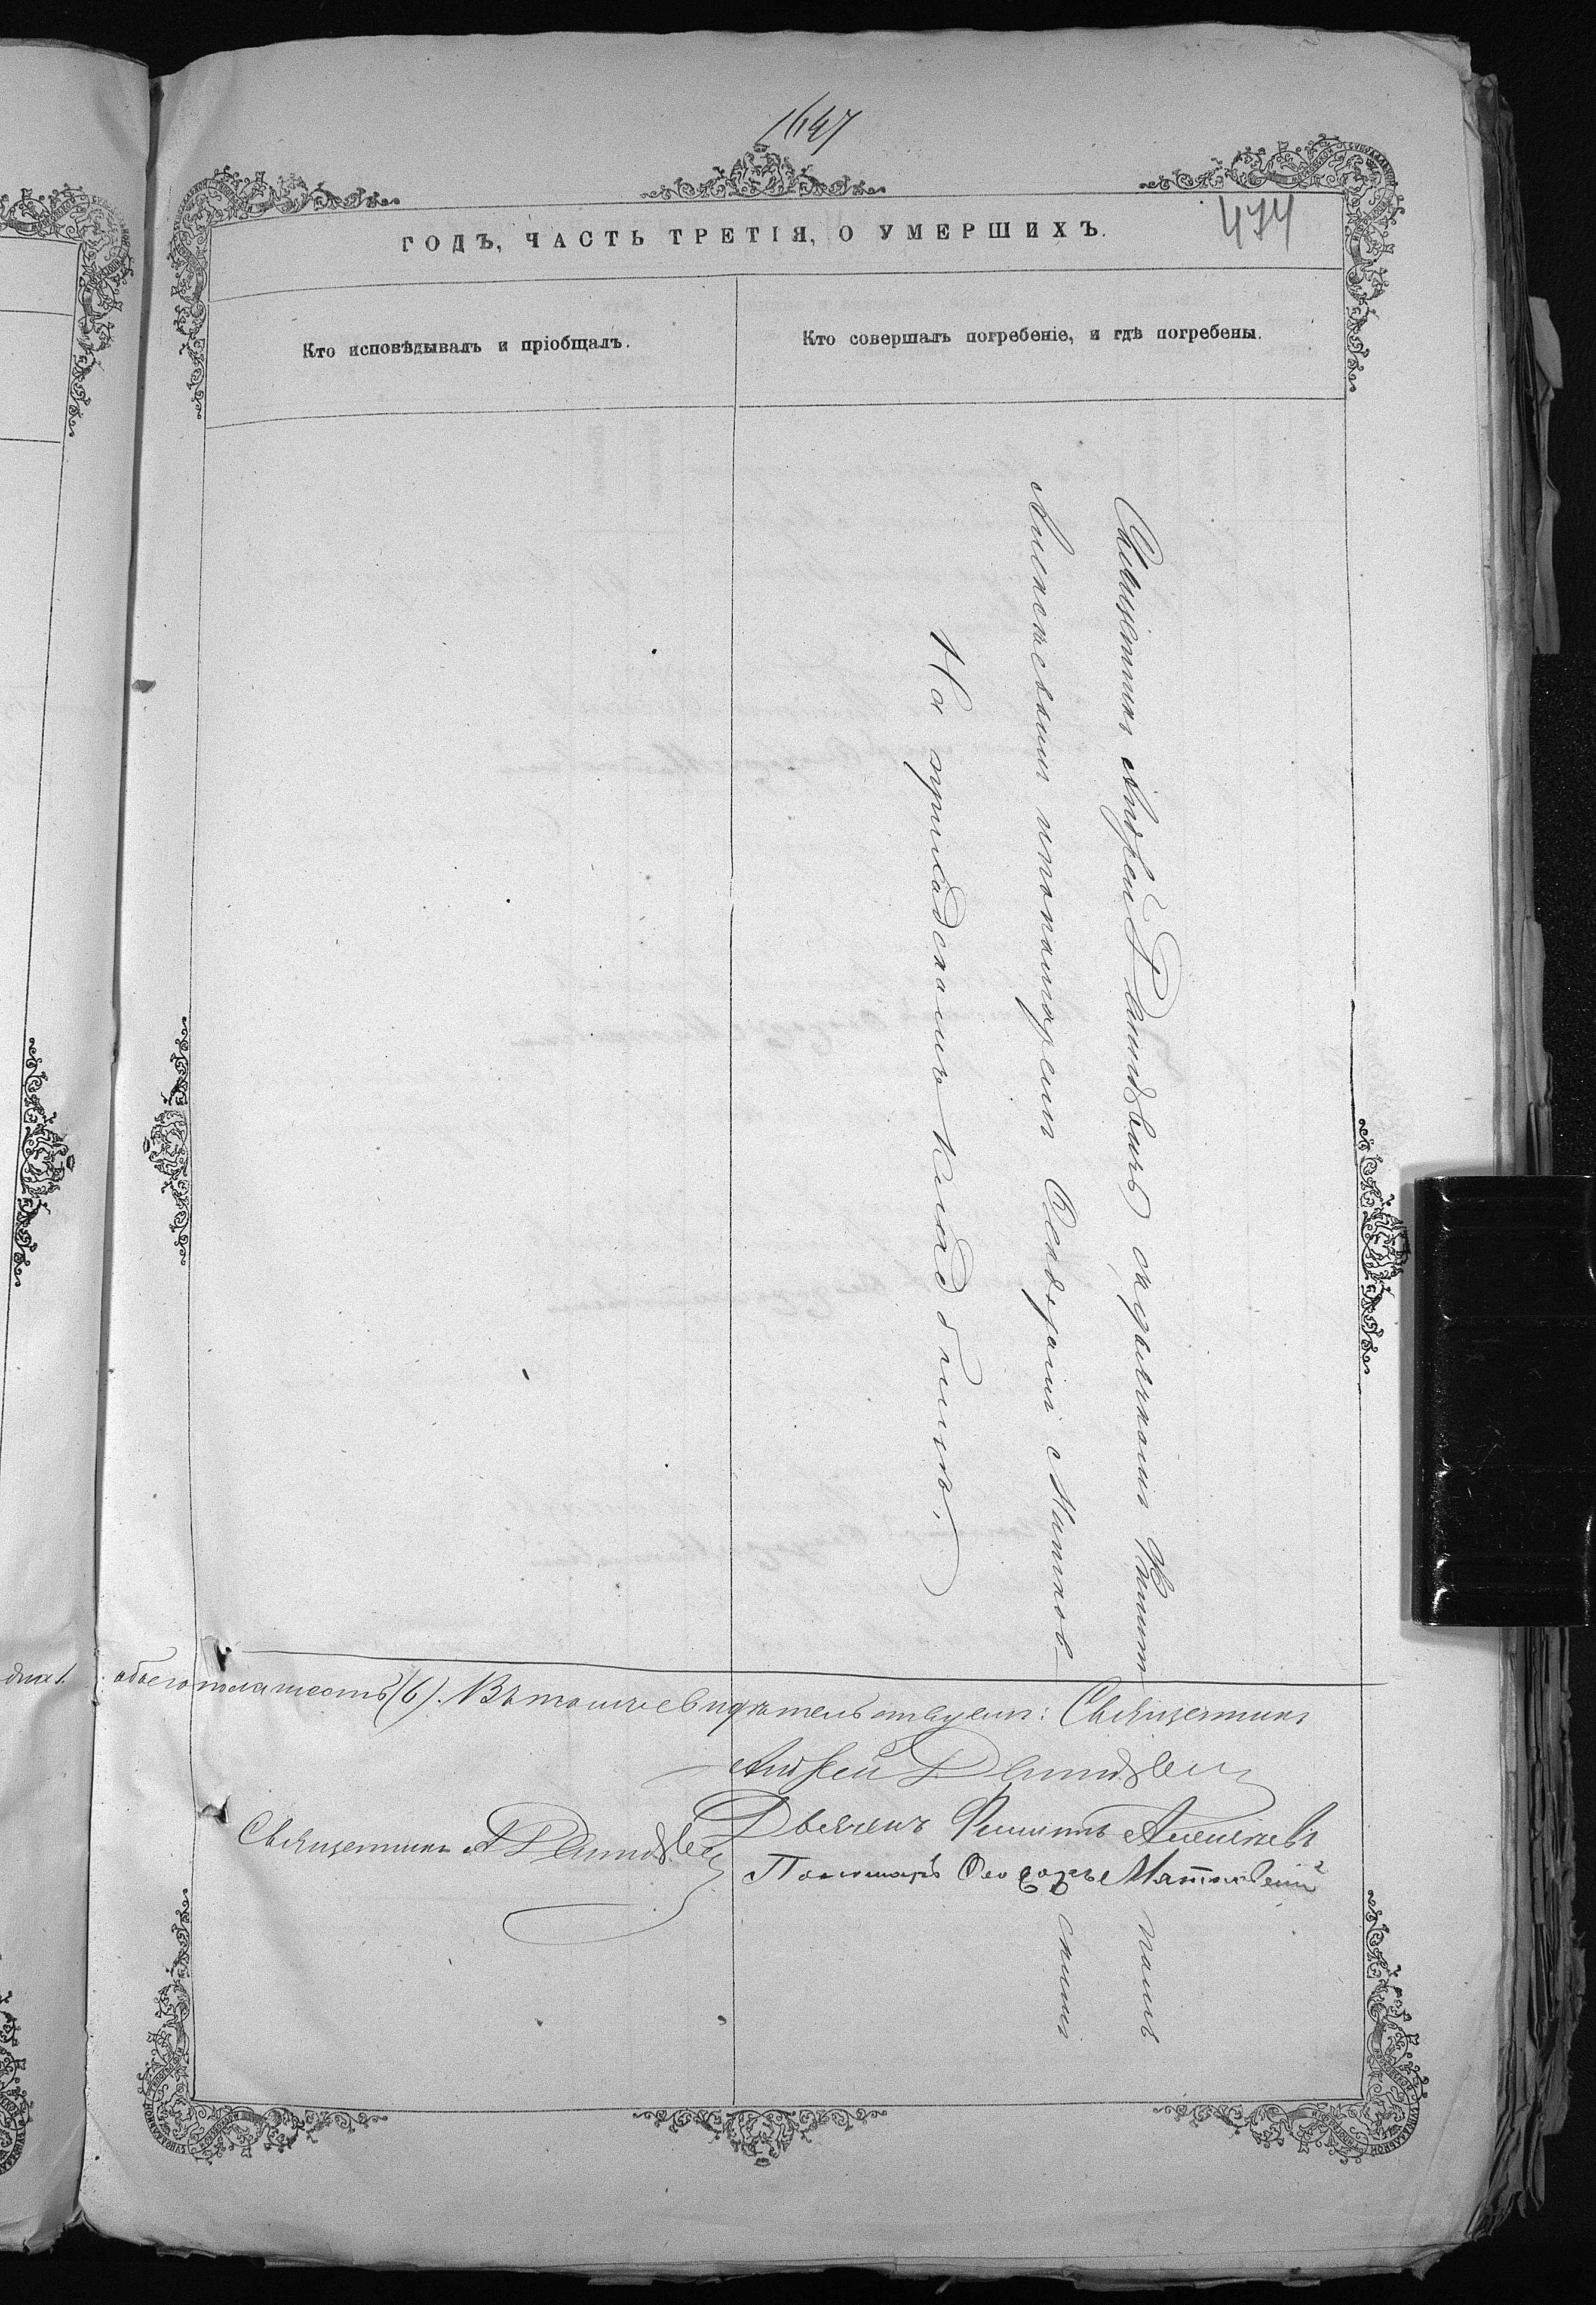 1647
474
ГОДЪ, ЧАСТЬ ТРЕТІЯ, О УМЕРШИХЪ.
Кто исповѣдывалъ и пріобщалъ.
Кто совершалъ погребеніе, и гдѣ погребены.
Священникъ Андрей съ дьячкомъ Филиппомъ
Алексѣевымъ и пономаремъ Ѳеодоромъ Матковскимъ
На приходскомъ кладбищѣ.
обоего пола шесть (6). Въ томъ свидѣтельствуемъ: Священникъ
Андрей
Дьячекъ Филиппъ Алексѣевъ
Священникъ А
Пономарь Ѳеодоръ Матковскій